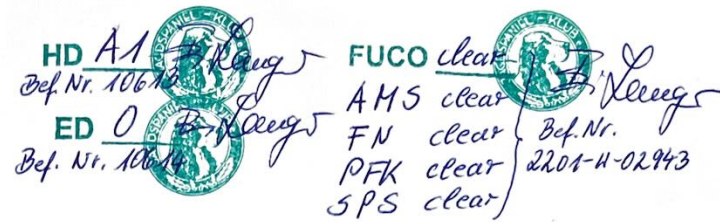 HD A1 B. Lange
Bef. Nr. 10613
ED 0 B. Lange
Bef. Nr. 10614
FUCO clear
AMS clear
FN clear
PFK clear
SPS clear
B. Lange
Bef. Nr.
2201-H-02943